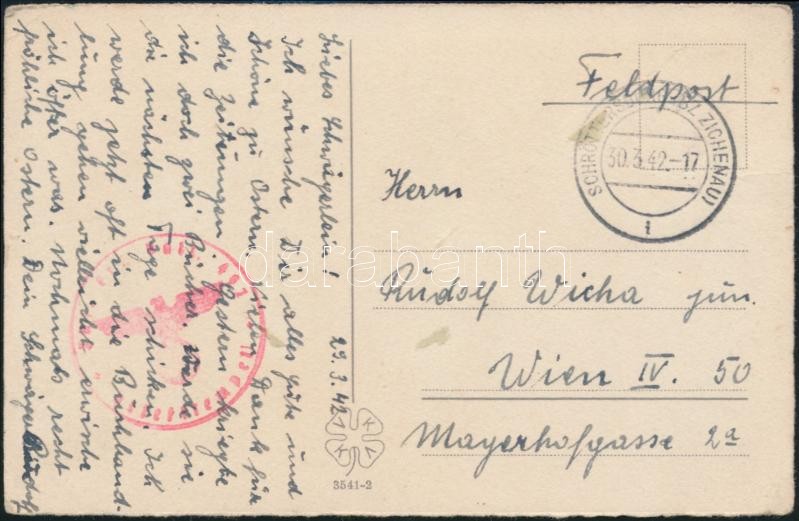 Liebes Schwägerlein! 29.3.42
Ich wünsche Dir alles Gute und
Schöne zu Ostern. Vielen Dank für
die Zeitungen. Gestern kriegte
ich doch zwei Bücher. Werde sie
die nächsten Tage schicken. Ich
werde jetzt oft in die Buchhand-
lung gehen vielleicht erwische
ich öfter was. Nochmals recht
fröhliche Ostern. Dein Schwager Rudolf
Feldpost
SCHRÖTTERSBURG (BZ ZICHENAU)
30.3.42.-17
i
Herrn
Rudolf Wicha jun.
Wien IV. 50
Mayerhofgasse 2a
K K L
3541-2
darabanth